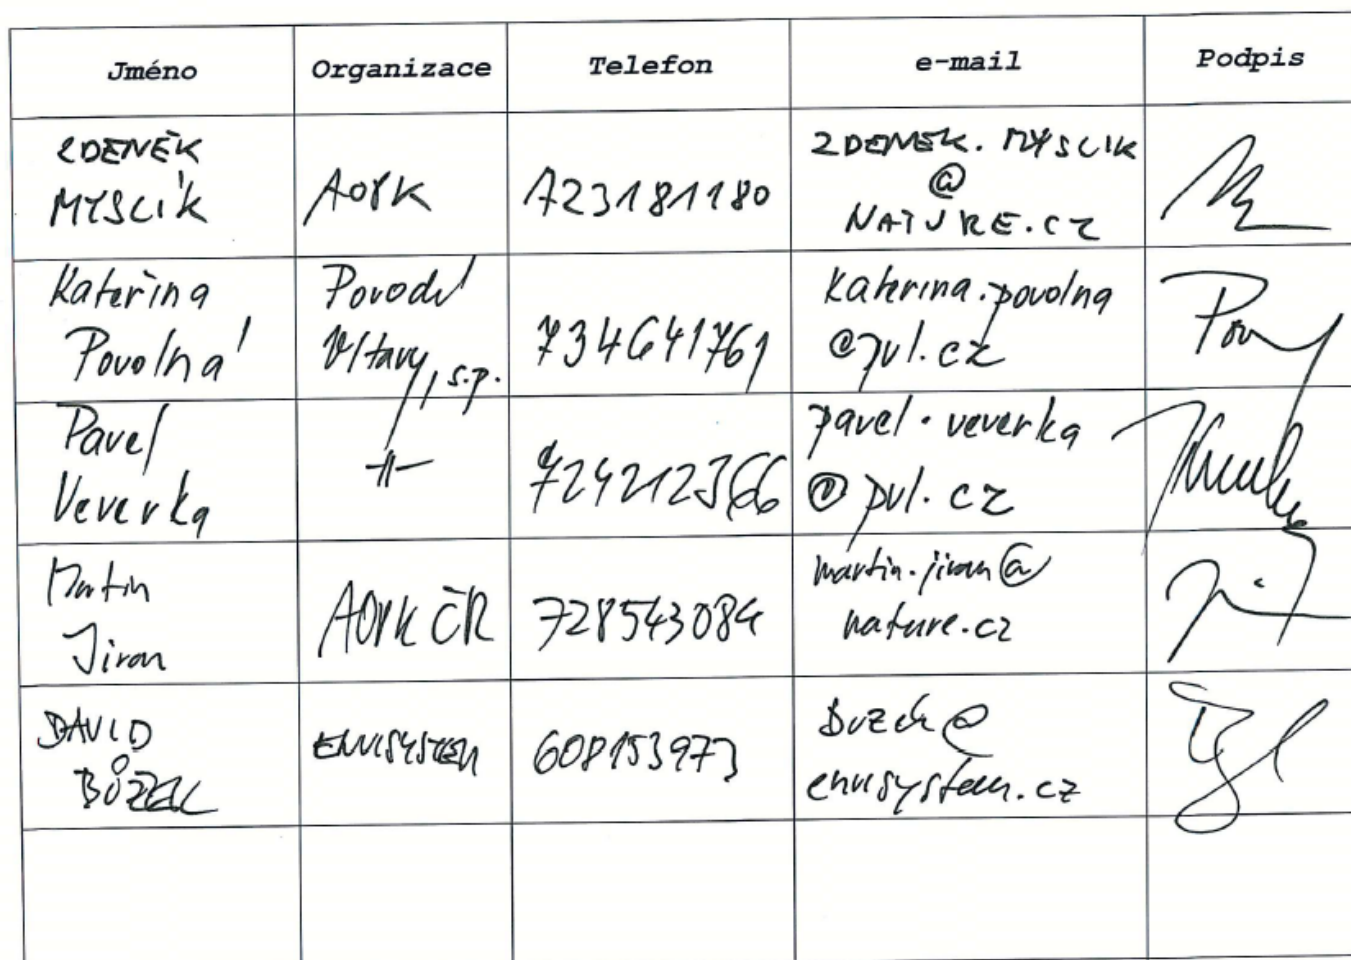 Jméno Organizace Telefon e-mail Podpis
ZDENĚK
MYSLÍK
AOPK
723181180
ZDENEK.MYSLIK
@
NATURE.CZ
Kateřina
Povolná
Povodí
Vltavy, s.p.
734641761
katerina.povolna
@pvl.cz
Pov
Pavel
Veverka
-||-
724212366
pavel.veverka
@pvl.cz
Martin
Jiran
AOPK ČR
728543084
martin.jiran@
nature.cz
DAVID
ENVISYSTEM
608153973
envisystem.cz